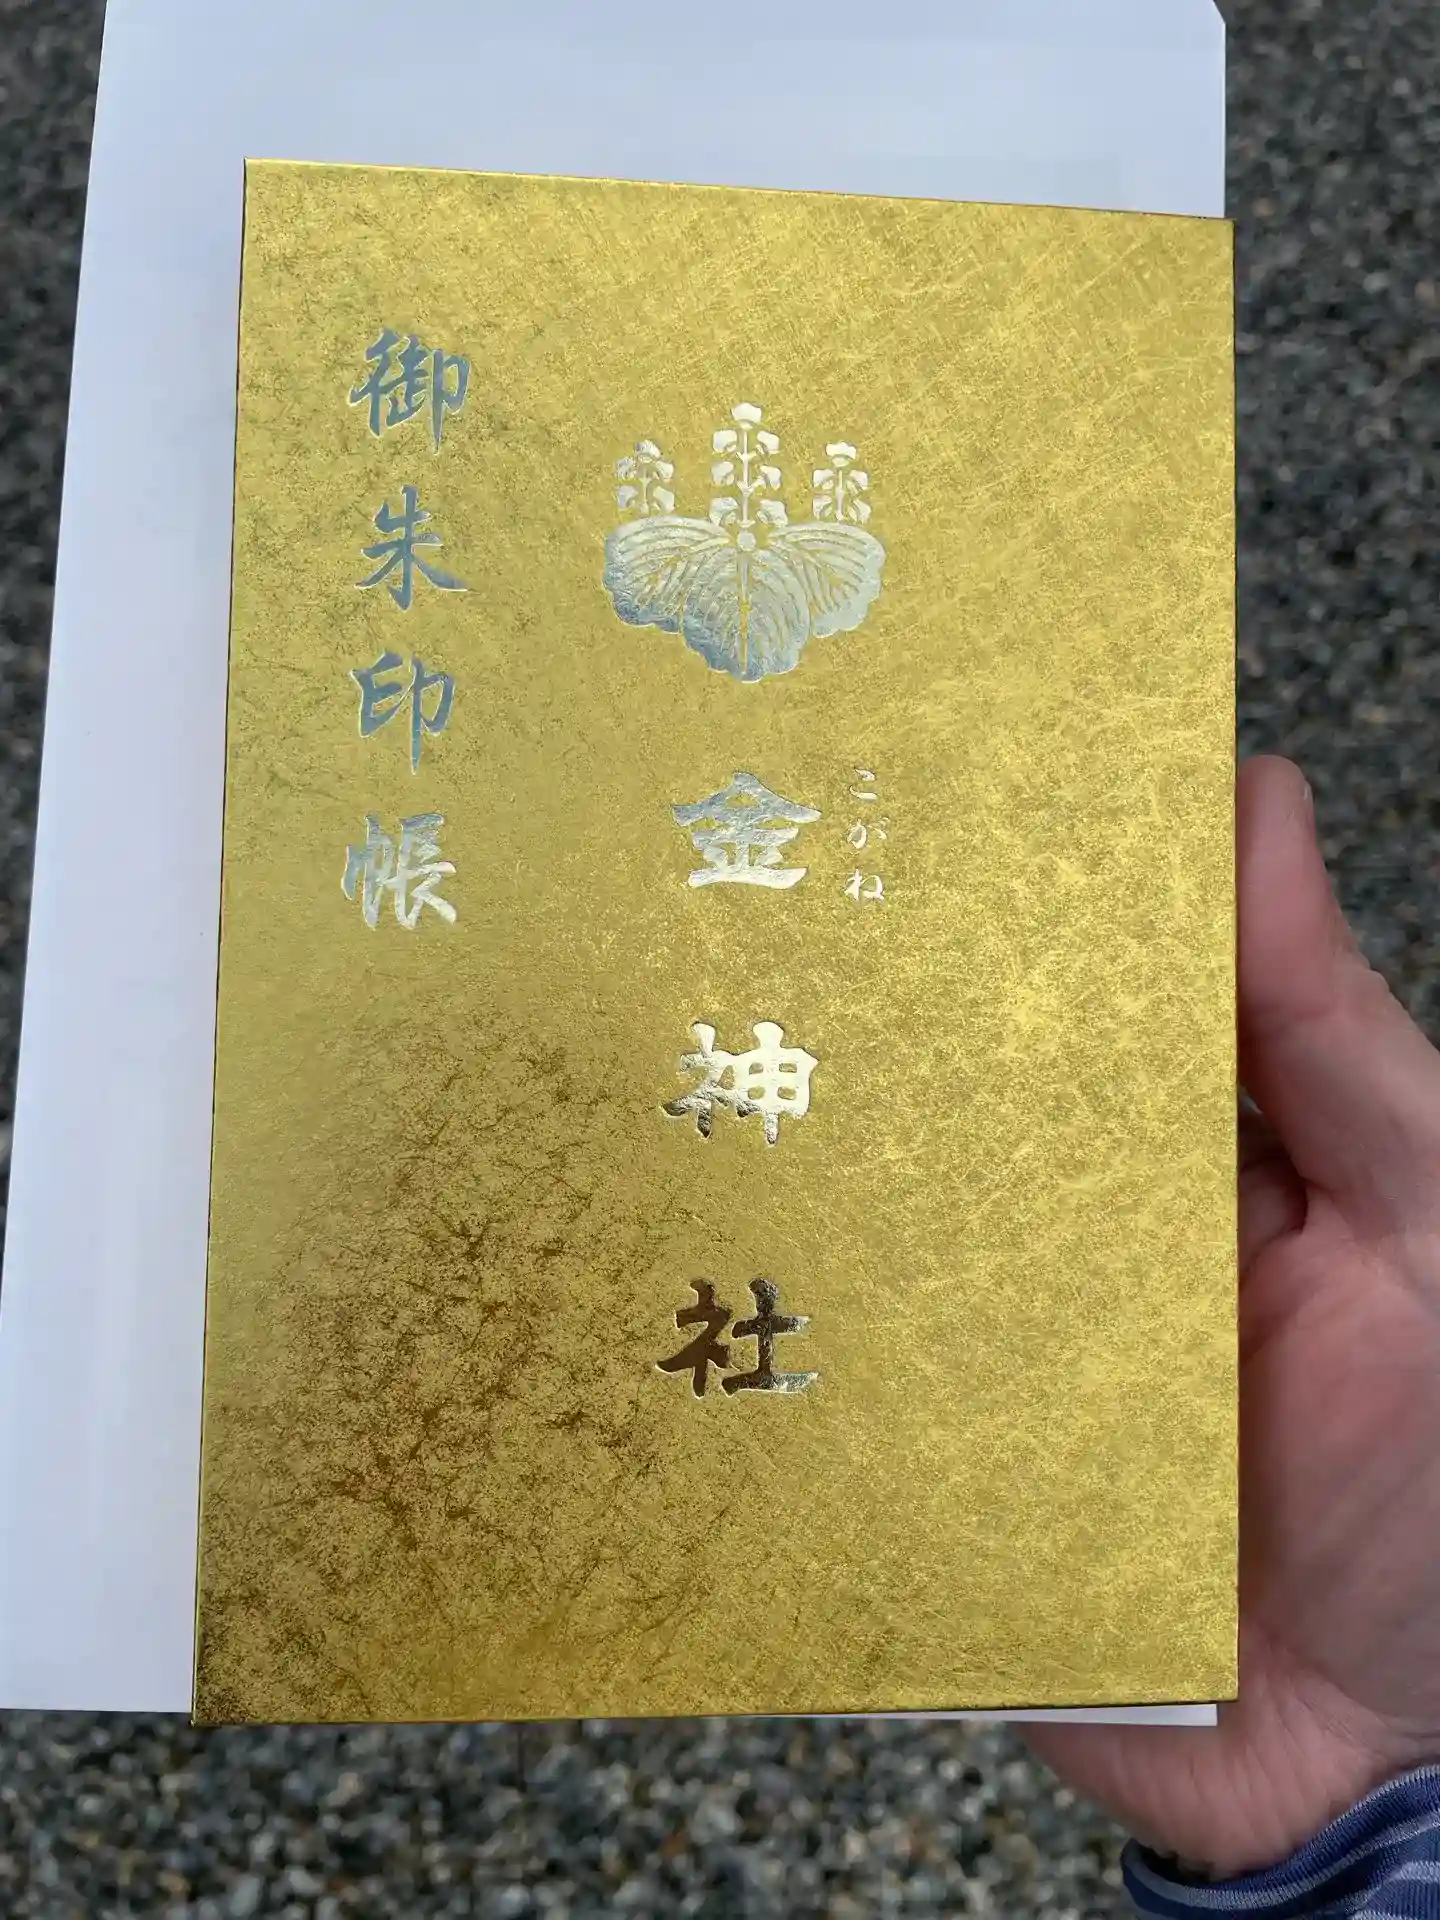 こがね
金神社
御朱印帳